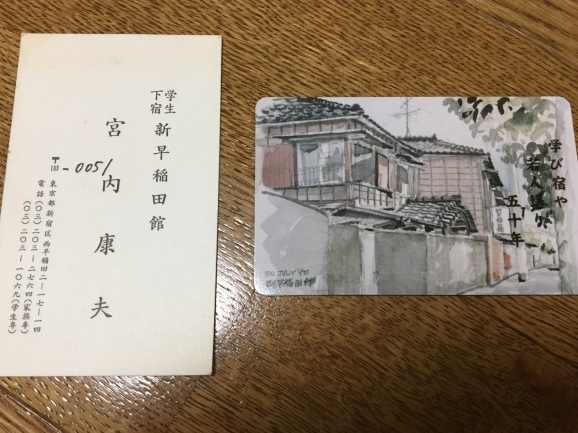 学生
下宿
新早稲田館
宮内康夫
〒160
-0051
東京都新宿区西早稲田二ー一七ー一四
電話(〇三)二〇三ー二七六四(家族専)
(〇三)二〇三ー一〇六九(学生専)
学び宿や
五十年
新早稲田館